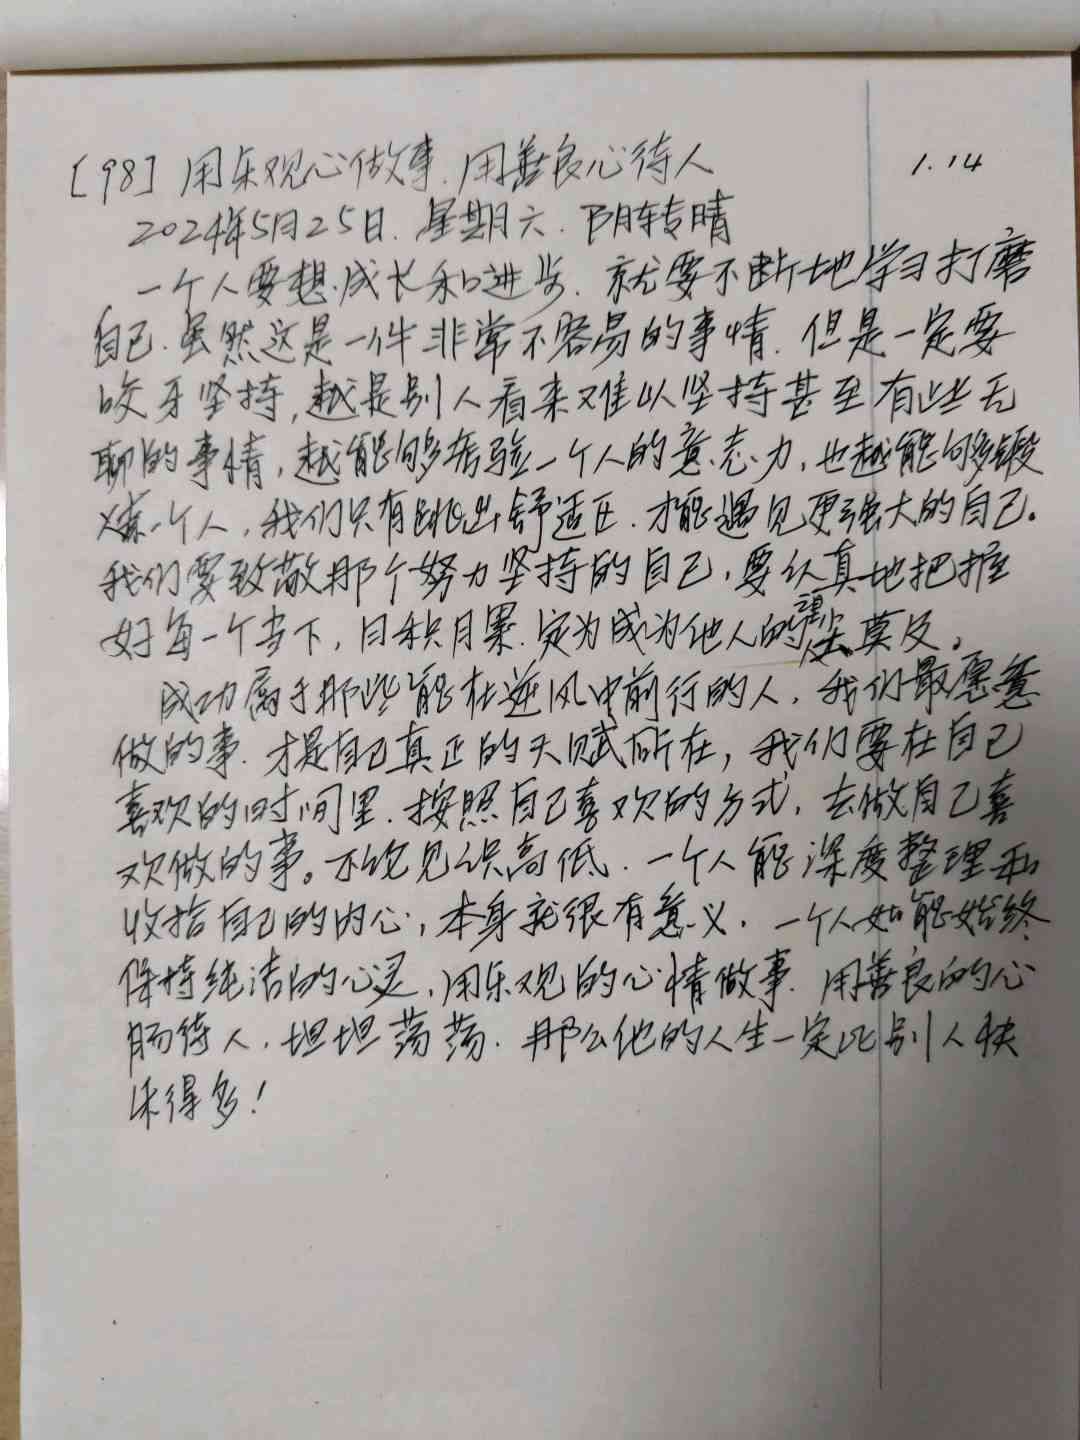 [98] 用乐观心做事.用善良心待人 1.14
2024年5月25日.星期六.阴转晴
一个人要想成长和进步.就要不断地学习打磨
自己.虽然这是一件非常不容易的事情.但是一定要
咬牙坚持,越是别人看来难以坚持甚至有些无
聊的事情,越能够考验一个人的意志力,也越能够锻
炼一个人,我们只有跳出舒适区.才能遇见更强大的自己。
我们要致敬那个努力坚持的自己,要认真地把握
好每一个当下,日积月累.定为成为他人的望尘莫及。
成功属于那些能在逆风中前行的人,我们最愿意
做的事.才是自己真正的天赋所在,我们要在自己
喜欢的时间里.按照自己喜欢的方式,去做自己喜
欢做的事。不论见识高低.一个人能深度整理和
收拾自己的内心,本身就很有意义.一个人如能始终
保持纯洁的心灵,用乐观的心情做事.用善良的心
肠待人.坦坦荡荡.那么他的人生一定比别人快
乐得多!